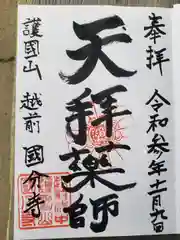 奉拝 令和叁年十一月九日
天拝薬師
護國山 越前 國分寺